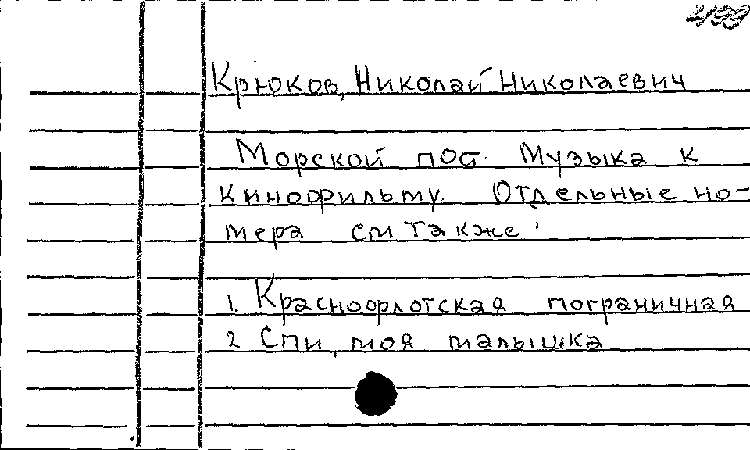 499
Крюков, Николай Николаевич
Морской пост. Музыка к
кинофильму. Отдельные но-
мера см также:
1. Краснофлотская пограничная
2 Спи, моя малышка